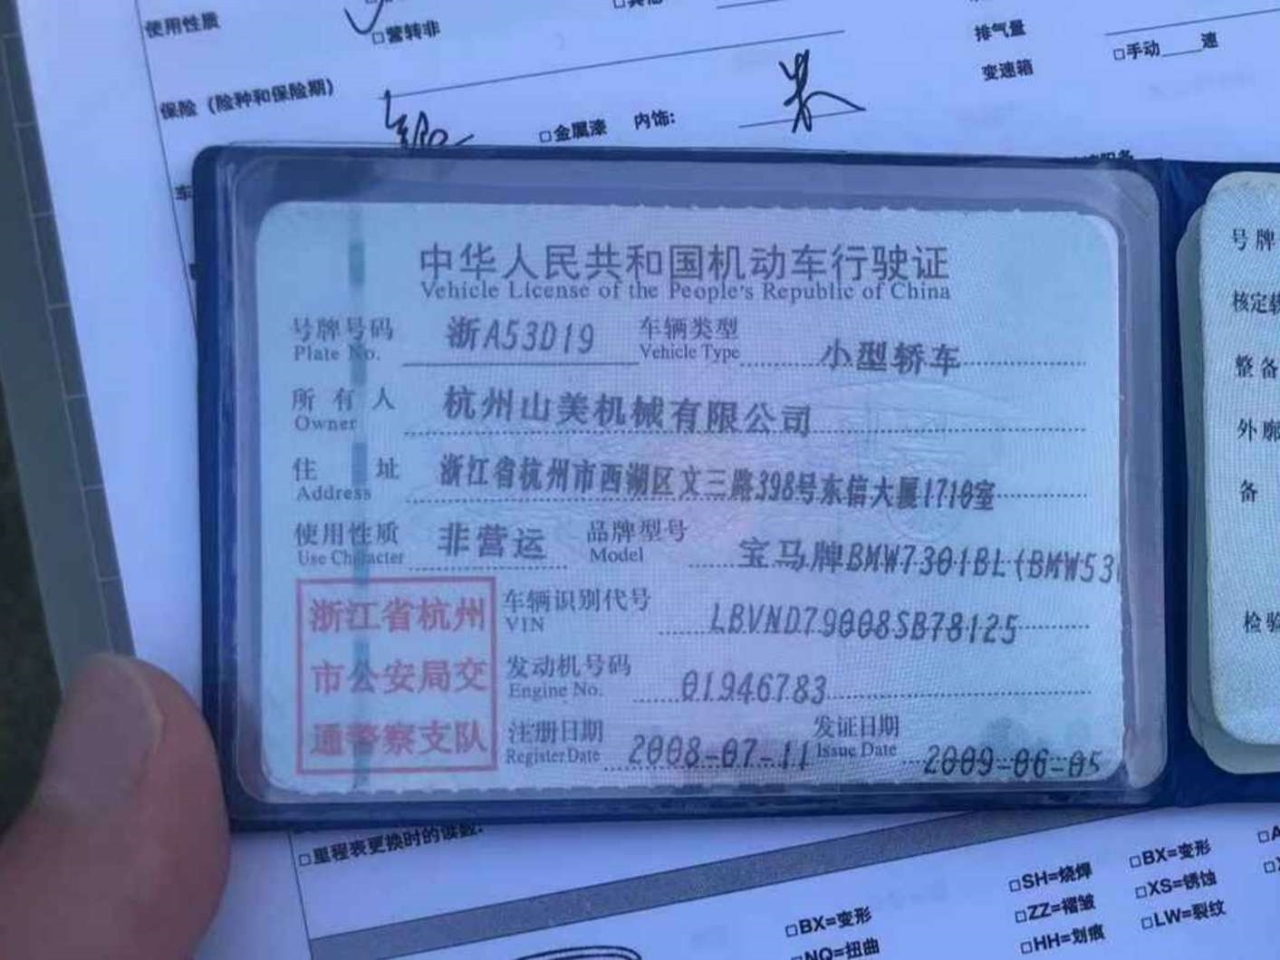 使用性质
□营转非
排气量
□手动____速
变速箱
保险（险种和保险期）
□金属漆 内饰:
中华人民共和国机动车行驶证
Vehicle License of the People's Republic of China
号牌号码 浙A53D19 车辆类型 小型轿车
Plate No. Vehicle Type
所有人 杭州山美机械有限公司
Owner
住址 浙江省杭州市西湖区文三路398号东信大厦1710室
Address
使用性质 非营运 品牌型号 宝马牌BMW7301BL(BMW53
Use Character Model
浙江省杭州
市公安局交
通警察支队
车辆识别代号 LBVND79008SB78125
VIN
发动机号码 01946783
Engine No.
注册日期 2008-07-11 发证日期 2009-06-05
Register Date Issue Date
号牌
核定载
整备
外廓
备
检验
□里程表更换时的读数:
□SH=烧焊
□BX=变形
□ZZ=褶皱
□XS=锈蚀
□BX=变形
□HH=划痕
□LW=裂纹
□NQ=扭曲